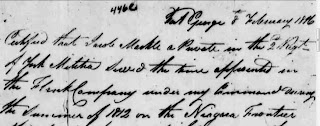 4460
Fort George 8 February 1816
Certified that Jacob Mackle a Private in the 2 Regt
of York Militia Served the time opposited in
the Flank Company under my Command during
the Summer of 1812 on the Niagara Frontier